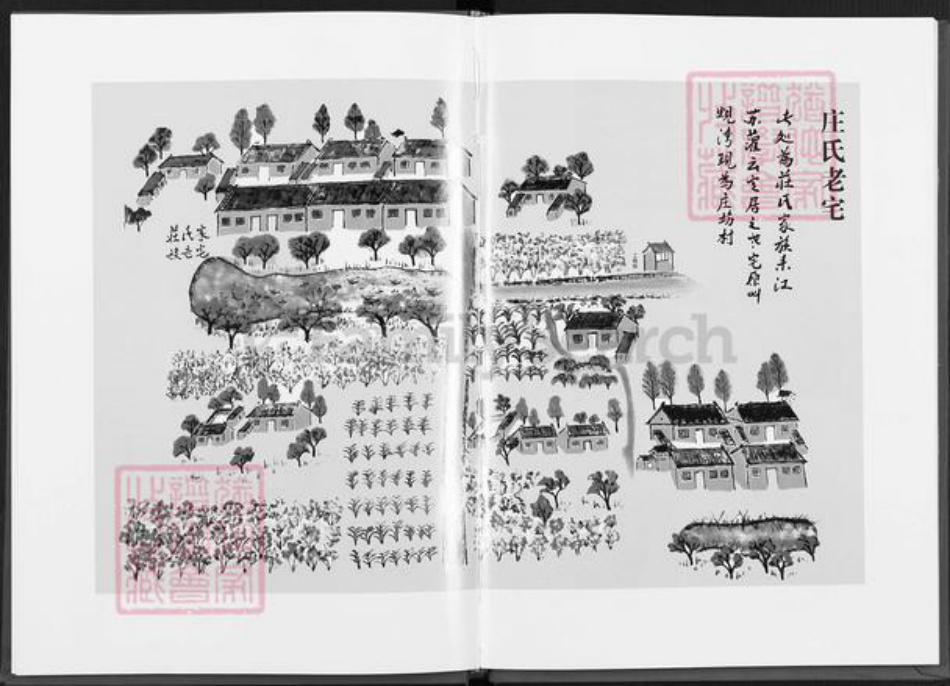 庄氏老宅
此处为莊氏家族来江
苏灌云定居之老宅原叫
蚬湾现为庄坊村
莊氏家
族老宅